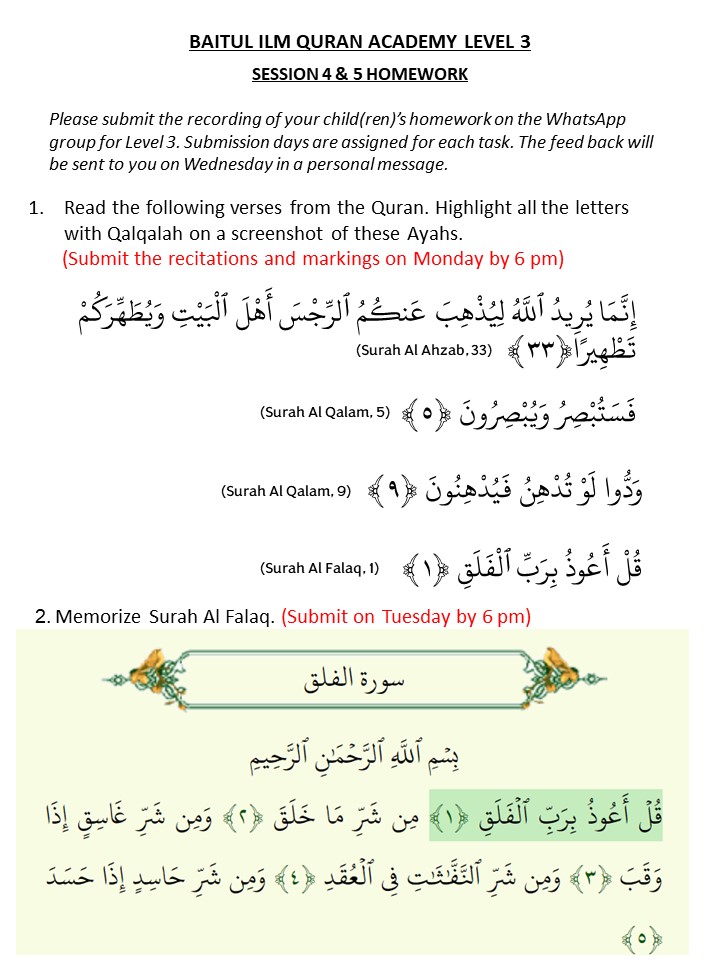 BAITUL ILM QURAN ACADEMY LEVEL 3
SESSION 4 & 5 HOMEWORK
Please submit the recording of your child(ren)'s homework on the WhatsApp
group for Level 3. Submission days are assigned for each task. The feed back will
be sent to you on Wednesday in a personal message.
1. Read the following verses from the Quran. Highlight all the letters
with Qalqalah on a screenshot of these Ayahs.
(Submit the recitations and markings on Monday by 6 pm)
إِنَّمَا يُرِيدُ ٱللَّهُ لِيُذْهِبَ عَنكُمُ ٱلرِّجْسَ أَهْلَ ٱلْبَيْتِ وَيُطَهِّرَكُمْ
تَطْهِيرًا ﴿٣٣﴾ (Surah Al Ahzab, 33)
فَسَتُبْصِرُ وَيُبْصِرُونَ ﴿٥﴾ (Surah Al Qalam, 5)
وَدُّوا لَوْ تُدْهِنُ فَيُدْهِنُونَ ﴿٩﴾ (Surah Al Qalam, 9)
قُلْ أَعُوذُ بِرَبِّ ٱلْفَلَقِ ﴿١﴾ (Surah Al Falaq, 1)
2. Memorize Surah Al Falaq. (Submit on Tuesday by 6 pm)
سورة الفلق
بِسْمِ ٱللَّهِ ٱلرَّحْمَـٰنِ ٱلرَّحِيمِ
قُلْ أَعُوذُ بِرَبِّ ٱلْفَلَقِ ﴿١﴾ مِن شَرِّ مَا خَلَقَ ﴿٢﴾ وَمِن شَرِّ غَاسِقٍ إِذَا
وَقَبَ ﴿٣﴾ وَمِن شَرِّ ٱلنَّفَّـٰثَـٰتِ فِى ٱلْعُقَدِ ﴿٤﴾ وَمِن شَرِّ حَاسِدٍ إِذَا حَسَدَ
﴿٥﴾